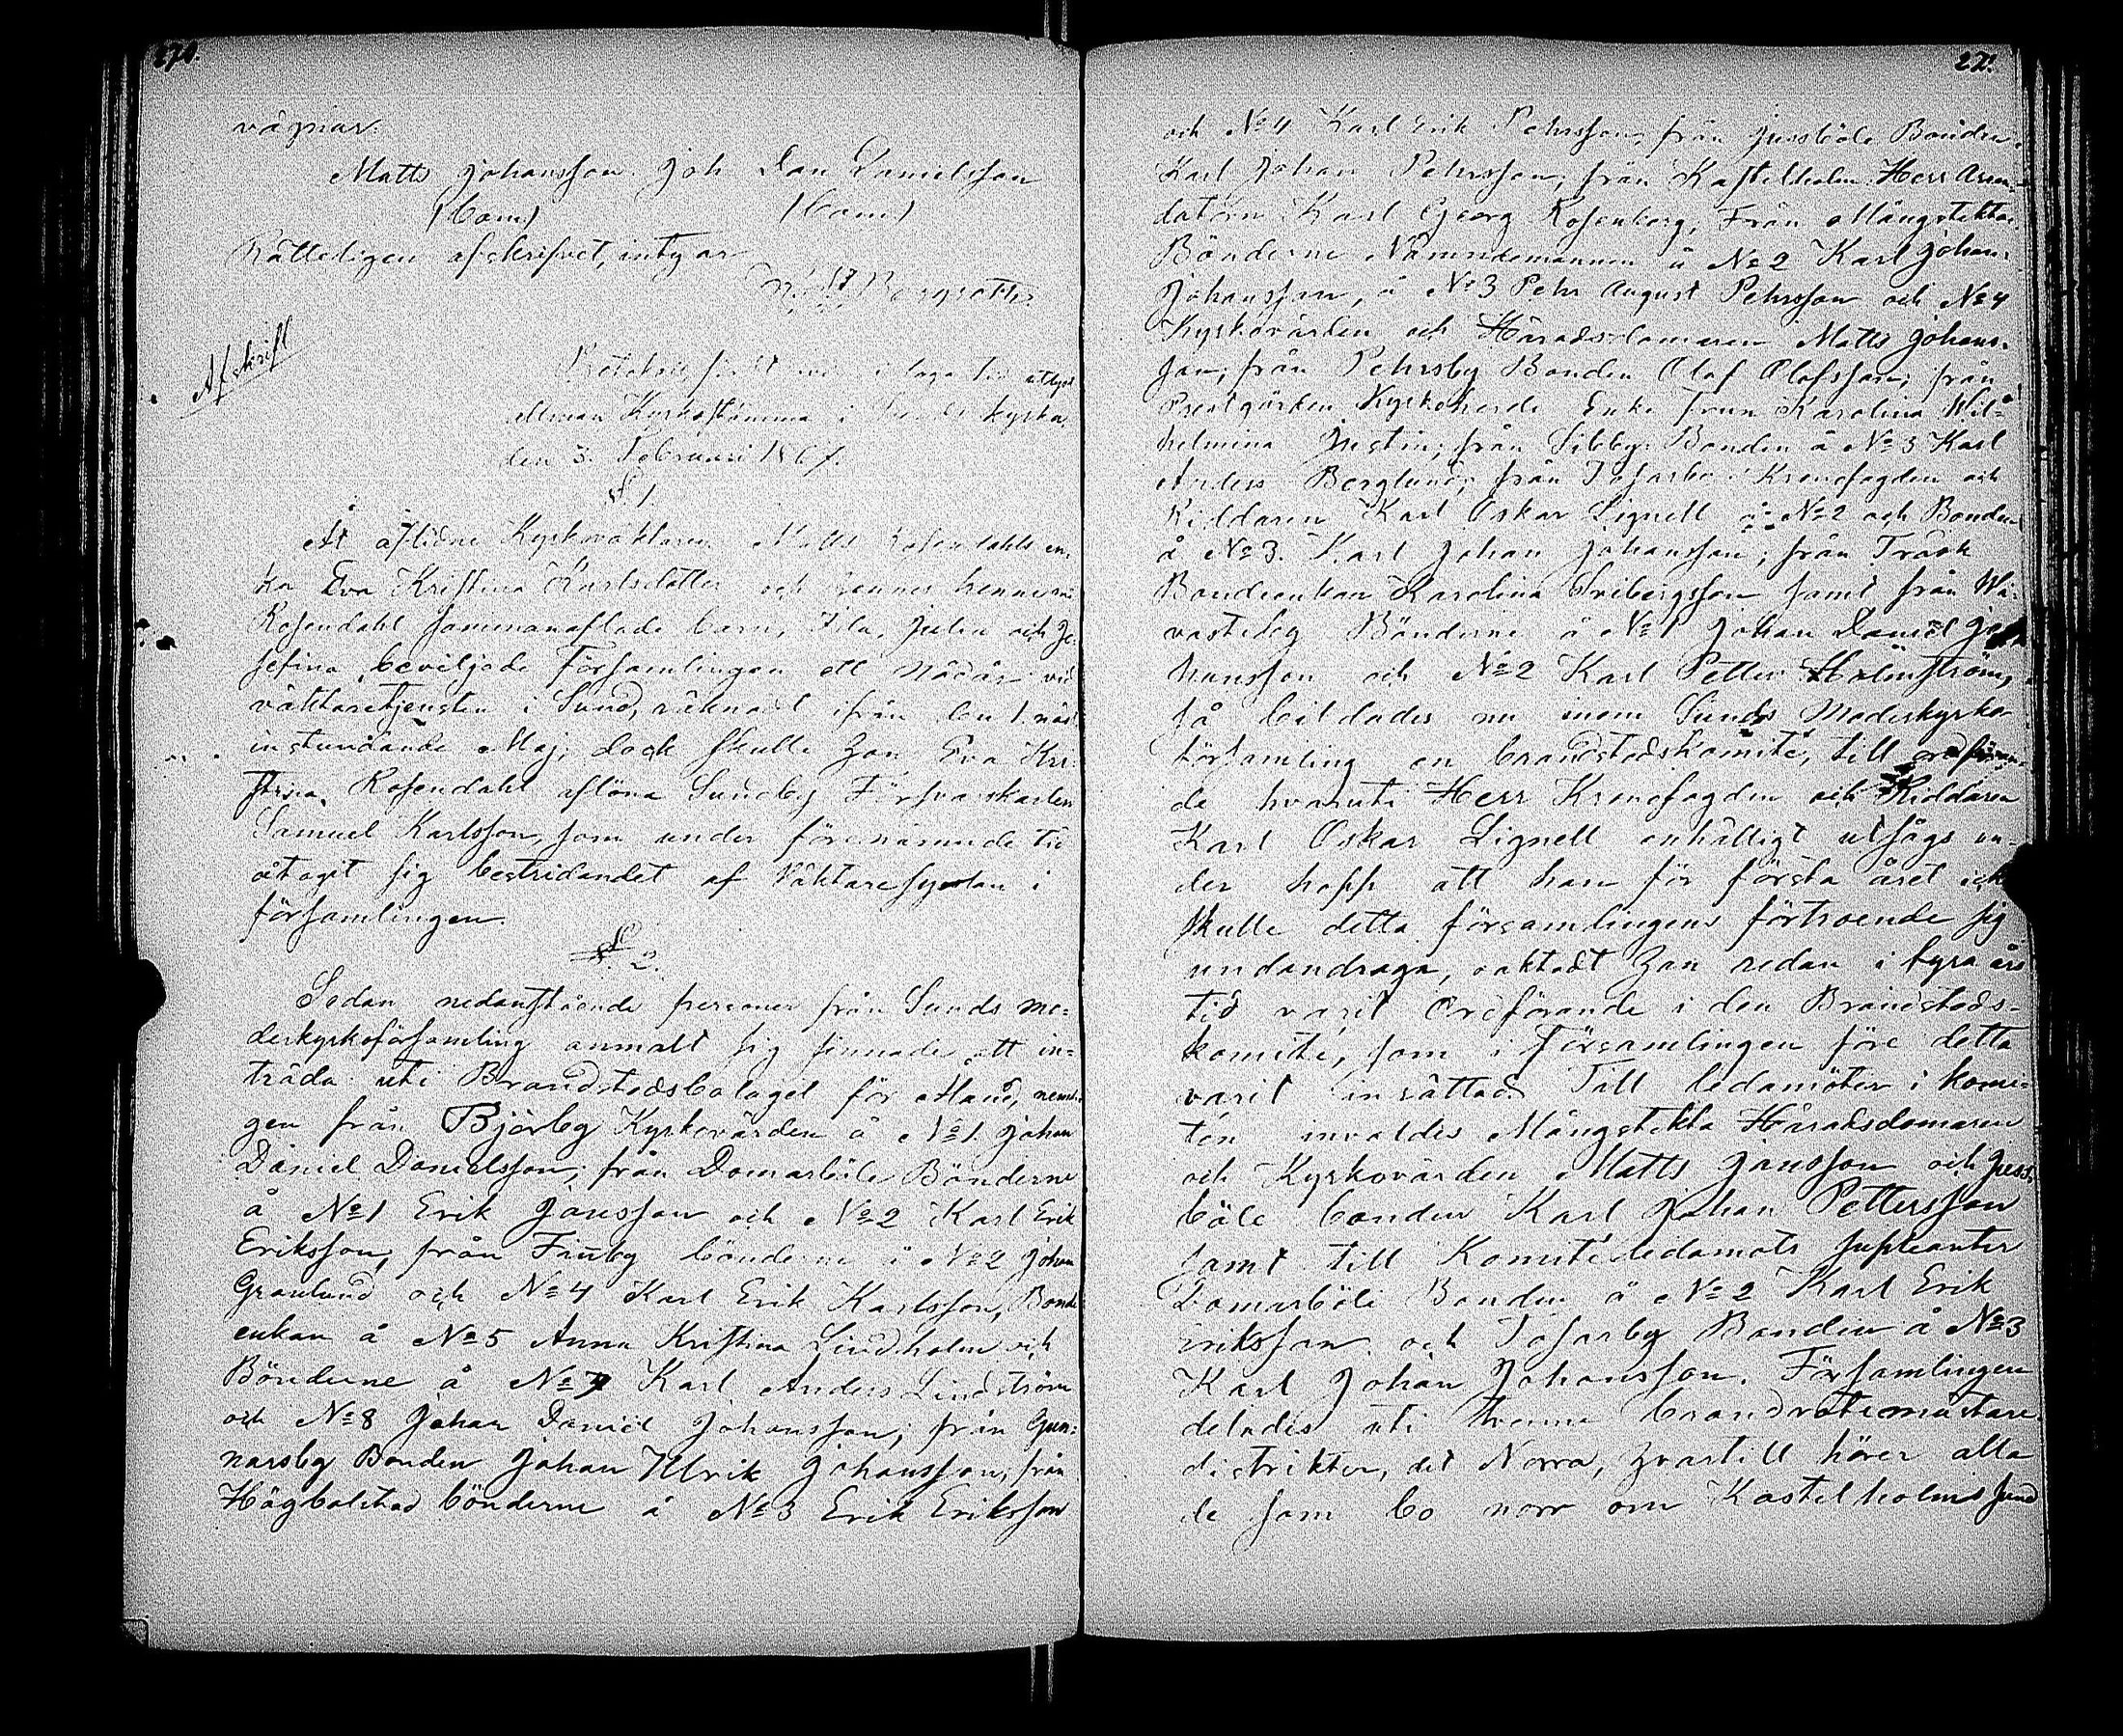 270.
vägnar:
Matts Johansson. Joh Dan Danielsson
(Bom.) (Bom.)
Rätteligen afskrifvet, intygar
Afskrift
Protokoll fördt vid i laga tid utlyst
allmän Kyrkostämma i Sunds kyrka
den 3. Februari 1867.
§ 1.
Åt aflidne Kyrkoväktaren Matts Rosendahls en-
ka Eva Kristina Karlsdotter och hennes henne med
Rosendahl sammanaflade barn, Tilda, Julia och Jo-
sefina, beviljade Församlingen ett nådår vid
väktaretjensten i Sund, räknadt ifrån den 1. näst
instundande Maj; dock skulle hon Eva Kri-
stina Rosendahl aflöna Sundby Försvarskarlen
Samuel Karlsson, som under förenämnde tid
åtagit sig bestridandet af Väktaresysslan i
församlingen.
§. 2.
Sedan nedanstående personer från Sunds mo-
derkyrkoförsamling anmält sig sinnade att in-
träda uti Brandstodsbolaget för Åland, nemli-
gen från Björby Kyrkovärden å No 1. Johan
Daniel Danielsson; från Domarböle Bönderne
å No 1 Erik Jansson och No 2 Karl Erik
Eriksson, från Finby bönderne å No 2 Johan
Granlund och No 4 Karl Erik Karlsson, Bonde
enkan å No 5 Anna Kristina Lindholm och
Bönderne å No 7 Karl Anders Lindström
och No 8 Johan Daniel Johansson; från Gun-
narsby Bonden Johan Ulrik Johansson; från
Högbolstad bönderne å No 3 Erik Eriksson
och No 4 Karl Erik Pehrsson, från Jussböle Bonden
Karl Johan Pehrsson; från Kastelholm Herr Arren-
datorn Karl Georg Rosenberg; Från Mångstekta
Bönderne Nämndemannen å No 2 Karl Johan
Johansson, å No 3 Pehr August Pehrsson och No 4
Kyrkovärden och Häradsdomaren Matts Johans-
son; från Pehrsby Bonden Olof Olofsson; från
Prestgården Kyrkoherde Enke Frun Karolina Wil-
helmina Justin; från Sibby Bonden å No 3 Karl
Anders Berglund; från Tosarby Kronofogden och
Riddaren Karl Oskar Lignell å No 2 och Bonden
å No 3. Karl Johan Johansson; från Träsk
Bondeenkan Karolina Sribergsson samt från Wi-
vasteby Bönderne å No 1 Johan Daniel Jo-
hansson och No 2 Karl Petter Holmström,
så bildades nu inom Sunds Moderkyrko-
församling en brandstodskomité, till ordföran-
de hvaruti Herr Kronofogden och Riddaren
Karl Oskar Lignell enhälligt utsågs un-
der hopp att han för första året icke
skulle detta församlingens förtroende sig
undandraga, oaktadt han redan i fyra års
tid varit Ordförande i den Brandstods-
komité, som i Församlingen före detta
varit insättad. Till ledamöter i komi-
tén invaldes Mångstekta Häradsdomaren
och Kyrkovärden Matts Jansson och Juss-
böle bonden Karl Johan Pettersson
samt till Komitéledamots supleanter
Domarböle Bonden å No 2 Karl Erik
Eriksson och Tosarby Bonden å No 3
Karl Johan Johansson. Församlingen
delades uti tvenne brandrotemästare
distrikter, det Norra, hvartill hörer alla
de som bo norr om Kastelholms sund